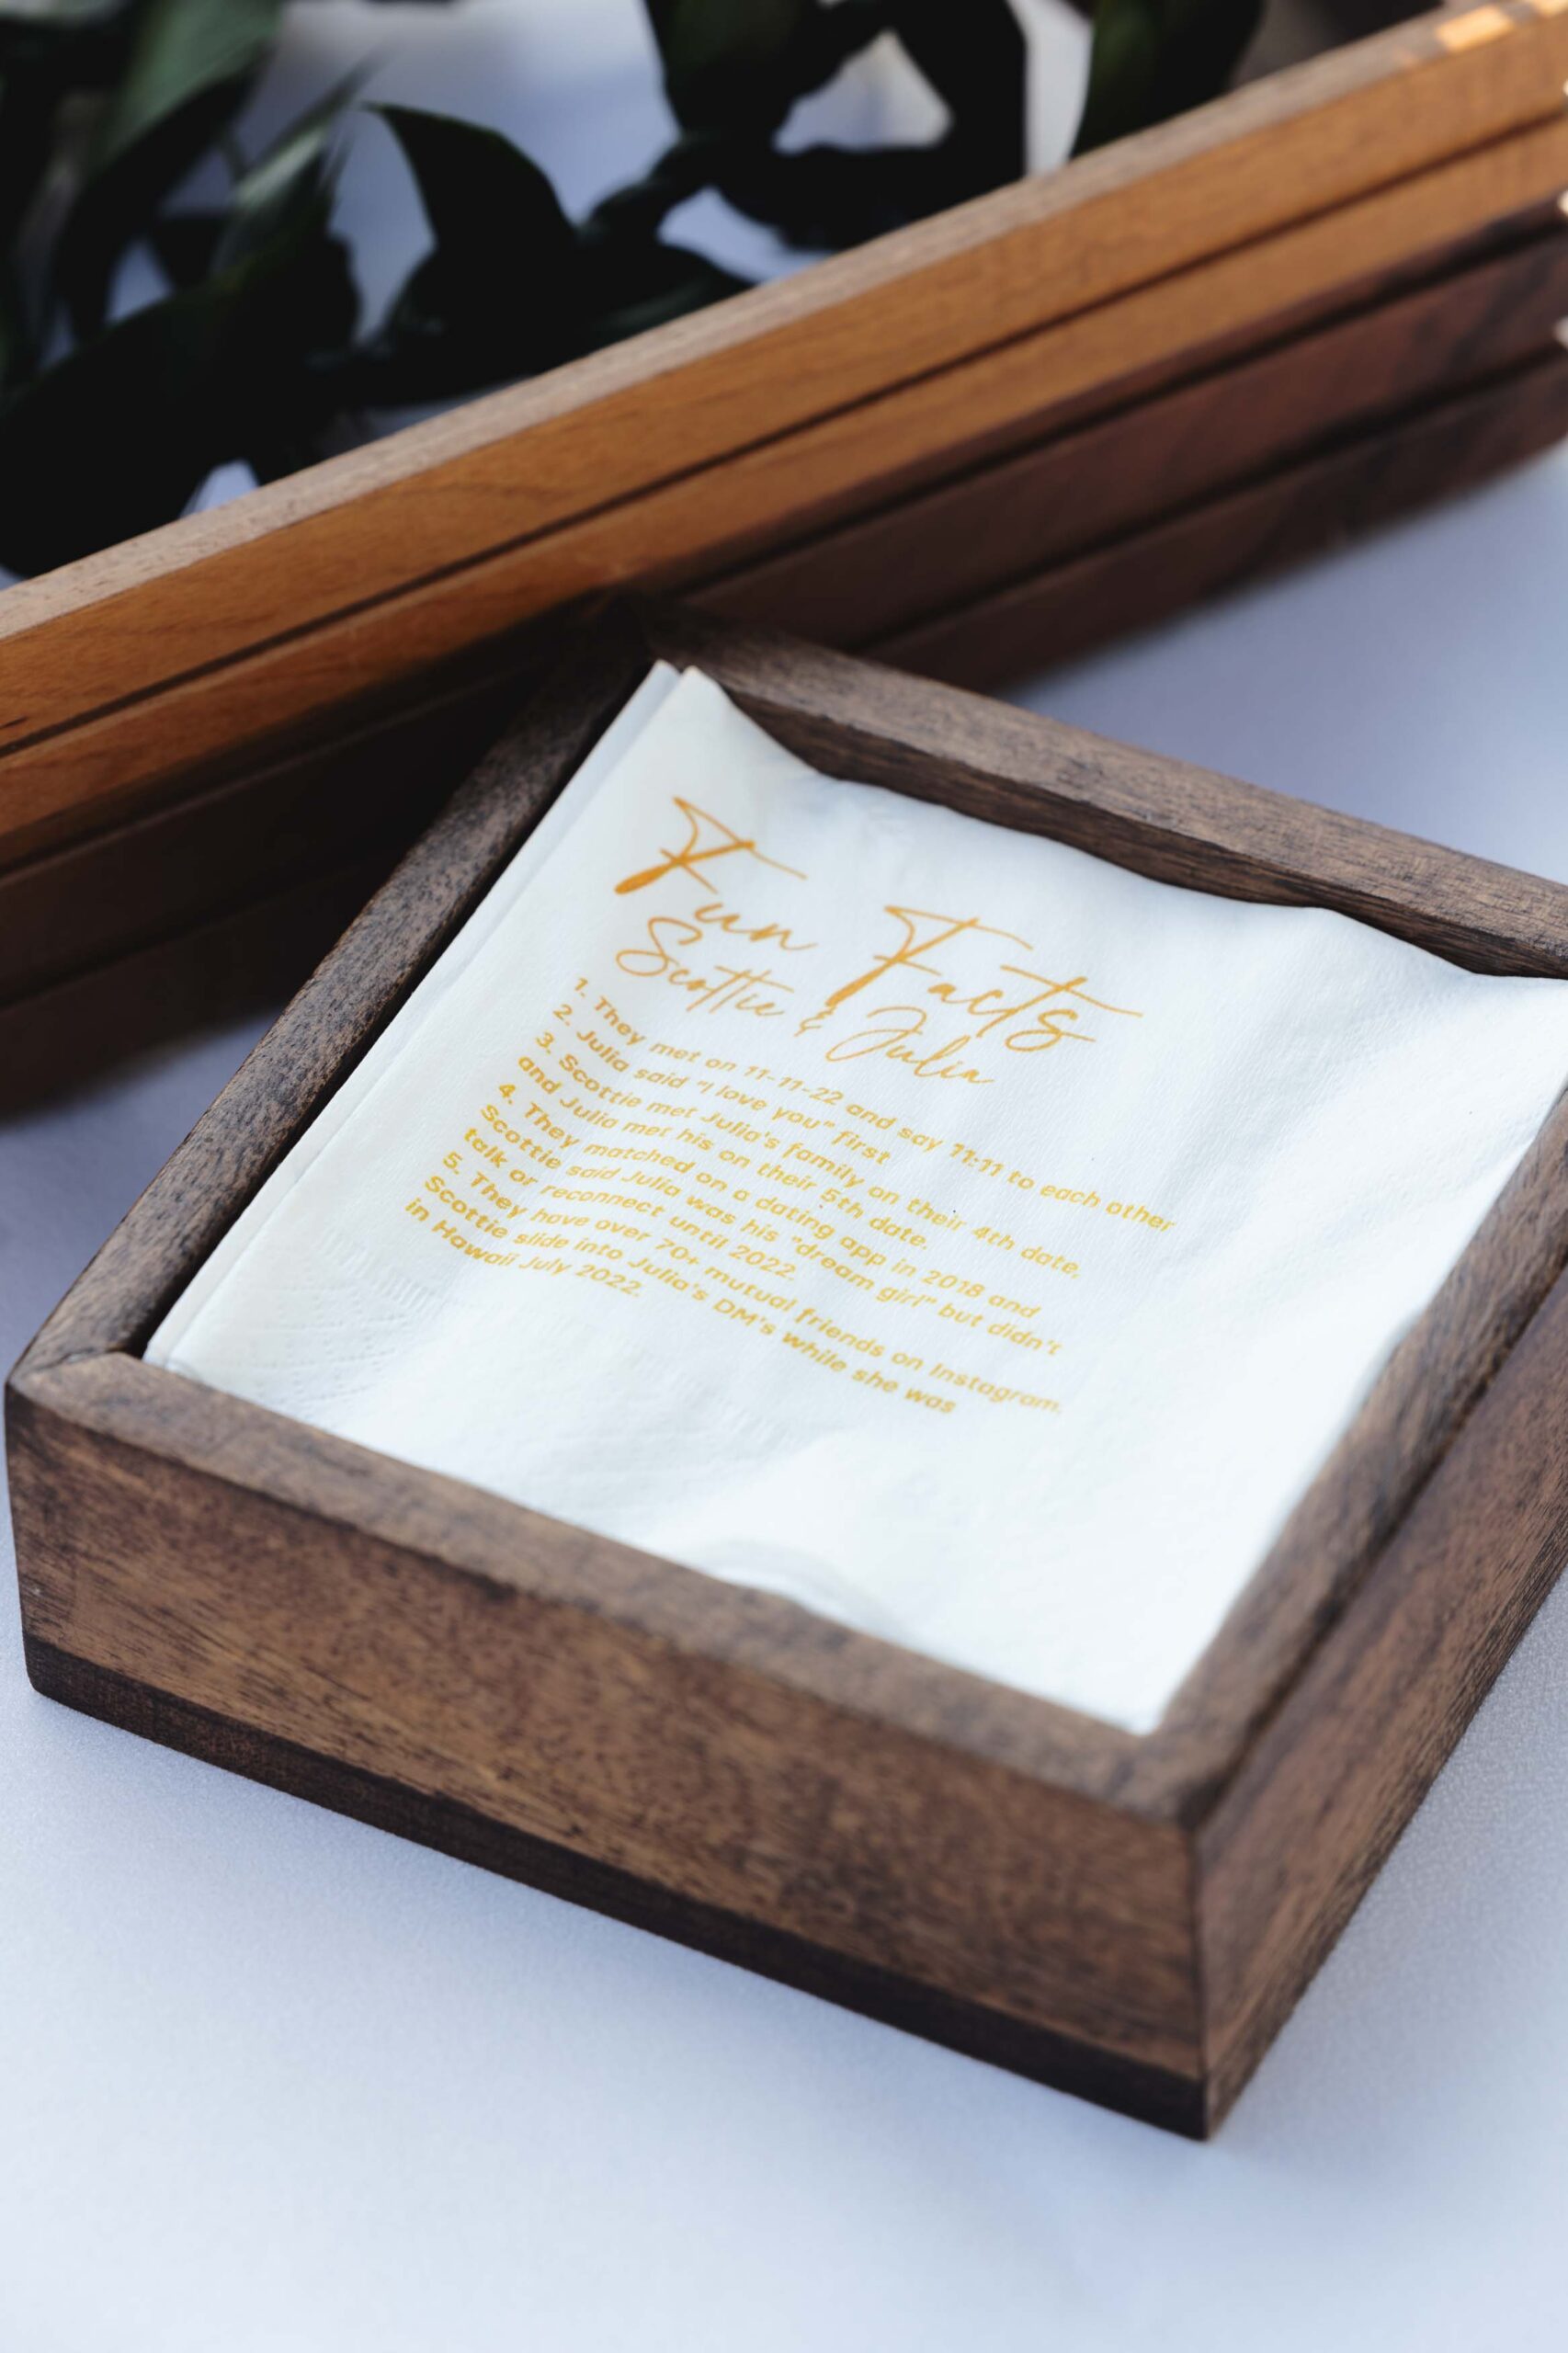 Fun Facts
Scottie & Julia
1. They met on 11-11-22 and say 11:11 to each other
2. Julia said "I love you" first
3. Scottie met Julia's family on their 4th date,
and Julia met his on their 5th date.
4. They matched on a dating app in 2018 and
Scottie said Julia was his "dream girl" but didn't
talk or reconnect until 2022.
5. They have over 70+ mutual friends on Instagram.
Scottie slide into Julia's DM's while she was
in Hawaii July 2022.